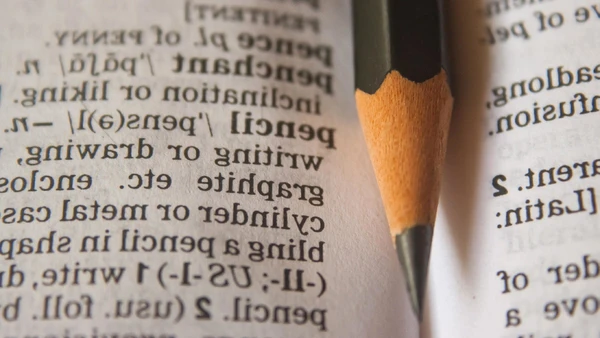 [PENITENT]
pence pl. of PENNY.
penchant /'pɑ̃ʃɑ̃/ n.
inclination or liking.
pencil /'pens(ə)l/ —n.
writing or drawing,
graphite etc. enclos
cylinder or metal cas
bling a pencil in shap
(-ll-; US -l-) 1 write, dr
pencil. 2 (usu. foll. b
ve of pel-
eadlong,
nfusion.
arent. 2
[Latin:
der of
ove a